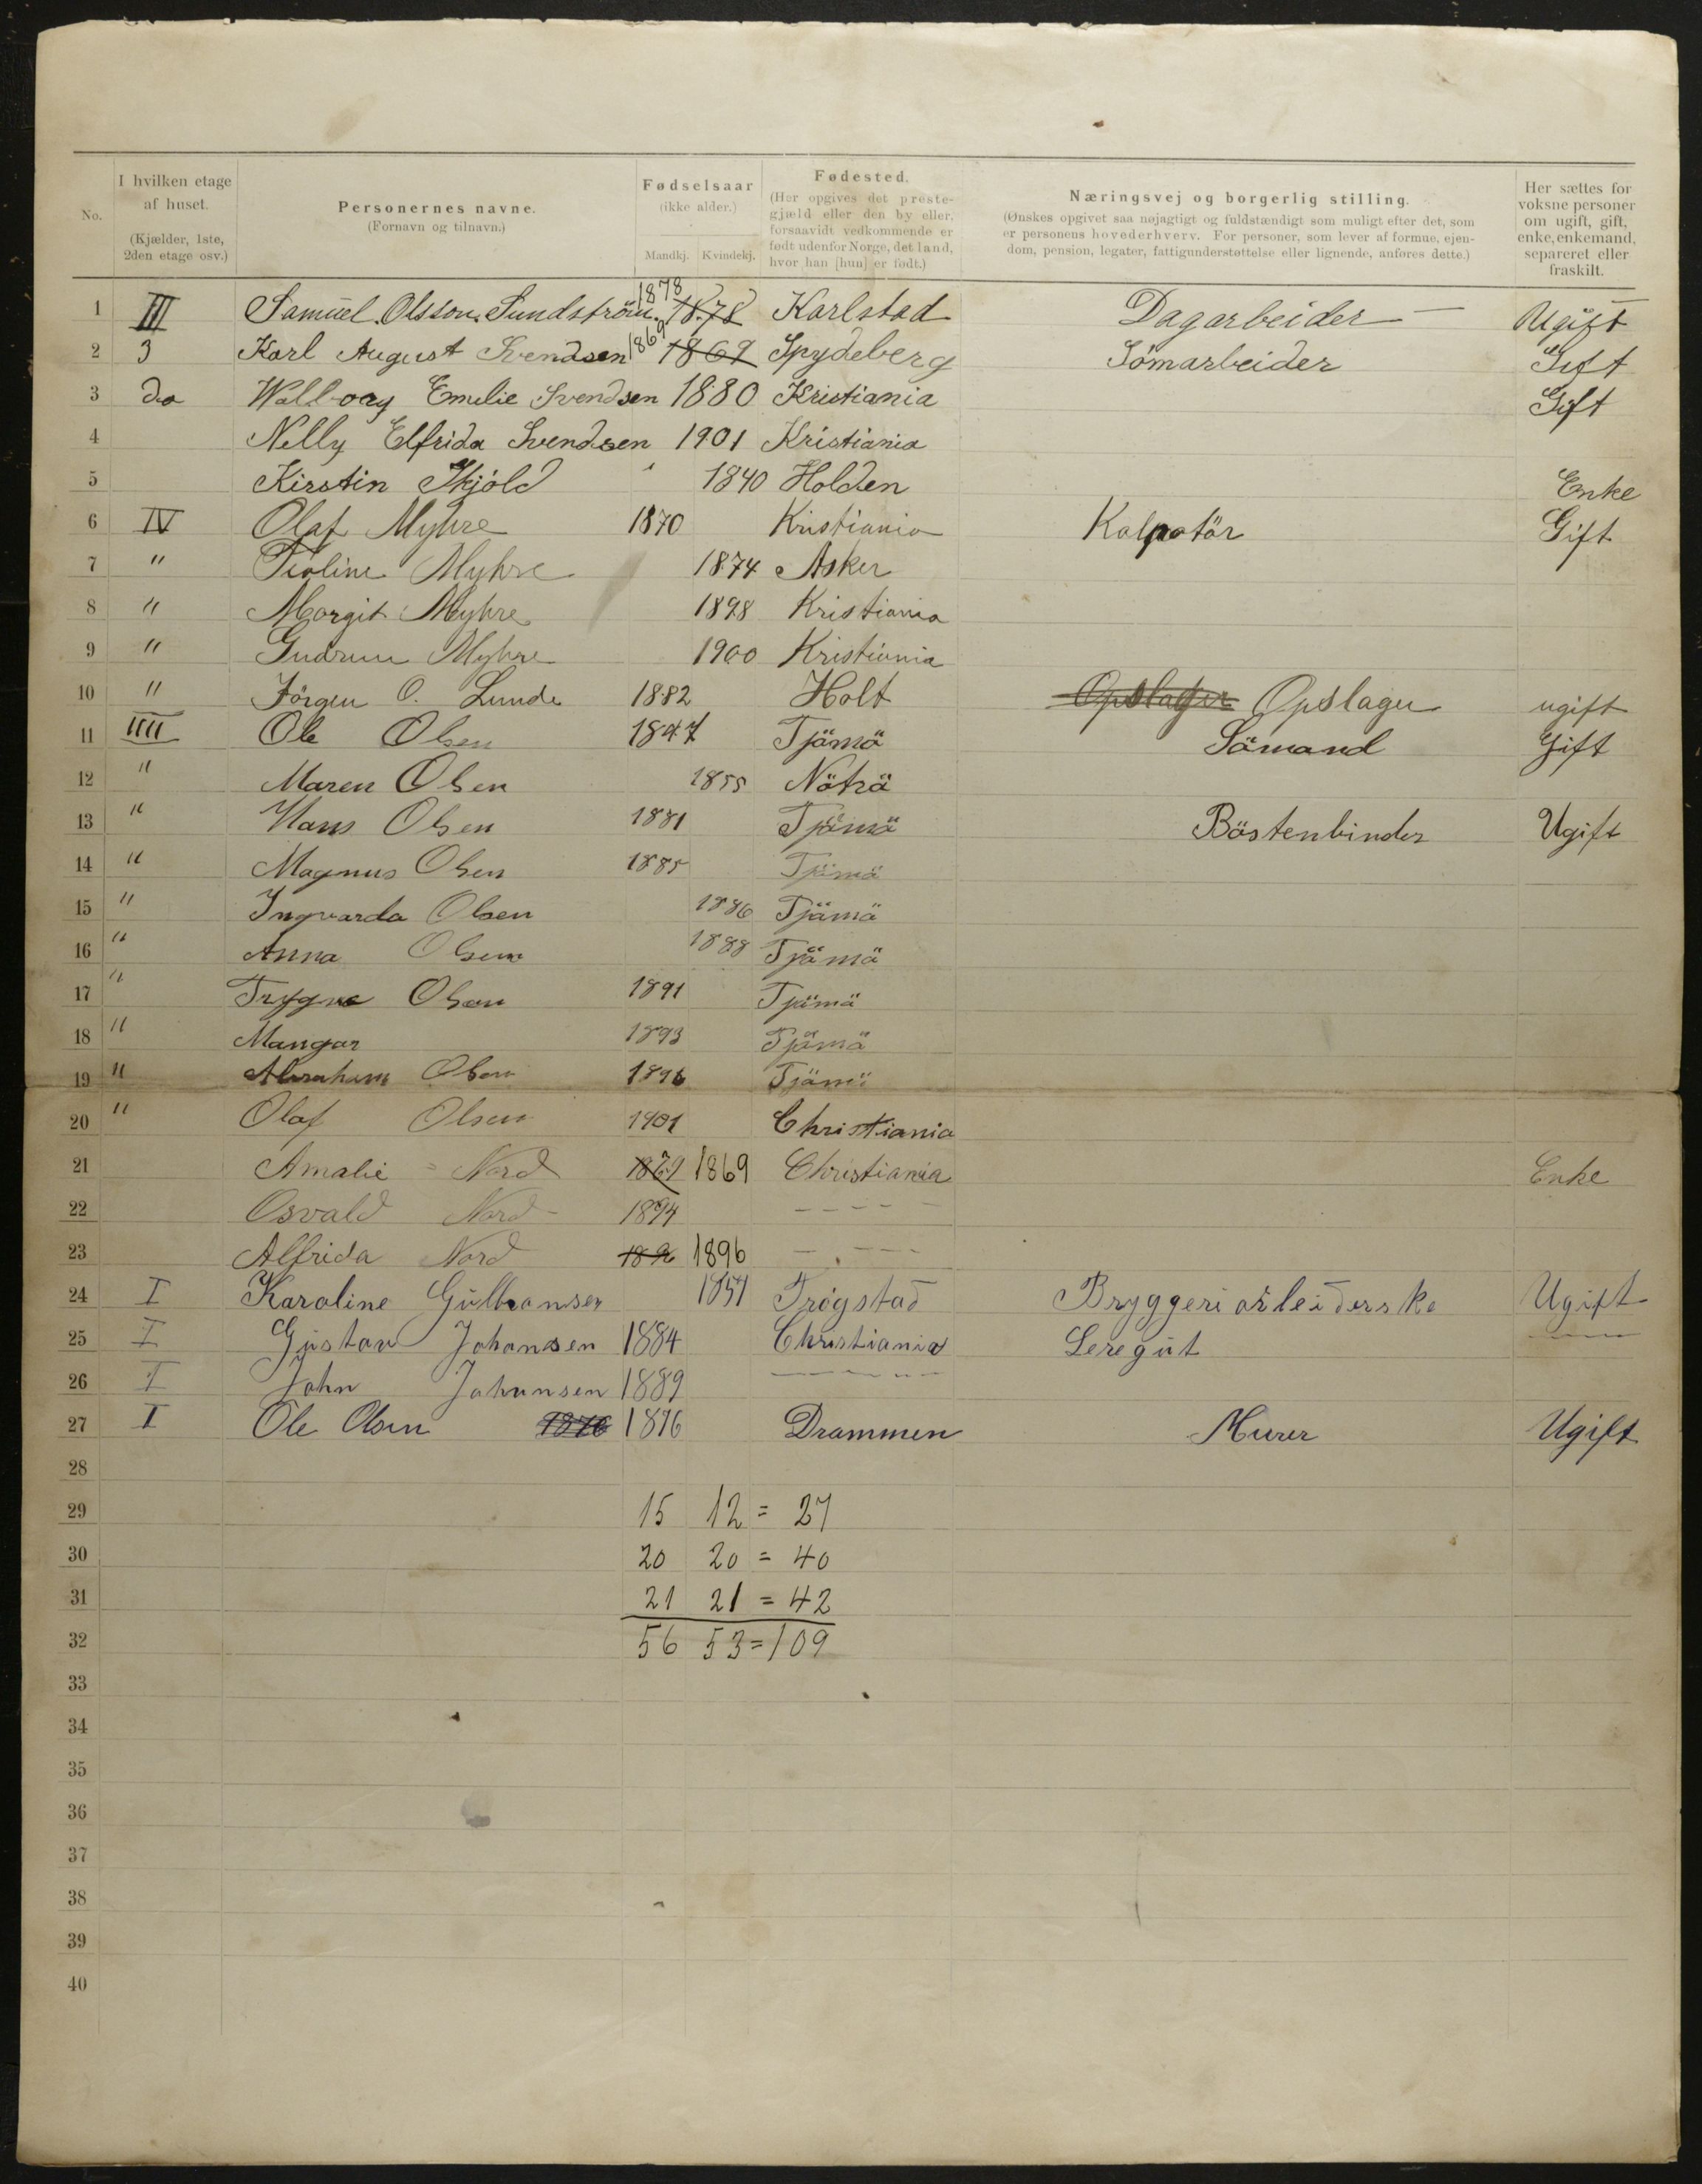 No.
I hvilken etage
af huset.
(Kjælder, 1ste,
2den etage osv.)
Personernes navne.
(Fornavn og tilnavn.)
Fødselsaar
(ikke alder.)
Mandkj. Kvindekj.
Fødested.
(Her opgives det preste-
gjæld eller den by eller,
forsaavidt vedkommende er
født udenfor Norge, det land,
hvor han [hun] er født.)
Næringsvej og borgerlig stilling.
(Ønskes opgivet saa nøjagtigt og fuldstændigt som muligt efter det, som
er personens hovederhverv. For personer, som lever af formue, ejen-
dom, pension, legater, fattigunderstøttelse eller lignende, anføres dette.)
Her sættes for
voksne personer
om ugift, gift,
enke, enkemand,
separeret eller
fraskilt.
1 III Samuel. Olsson. Sundström. 1878 1878 Karlstad Dagarbeider Ugift
2 3 Karl August Svendsen 1869 1869 Spydeberg Jömarbeider Gift
3 do Wallborg Emelie Svendsen 1880 Kristiania Gift
4 Nelly Elfrida Svendsen 1901 Kristiania
5 Kirstin Skjöld 1840 Holden Enke
6 IV Olaf Myhre 1870 Kristiania Kolpotör Gift
7 " Myhre 1874 Asker
8 " Margit Myhre 1898 Kristiania
9 " Gudrun Myhre 1900 Kristiania
10 " Jörgen O. Lunde 1882 Holt Opslager Opslager ugift
11 IIII Ole Olsen 1847 Tjämä Sämand Gift
12 " Maren Olsen 1855 Nöträ
13 " Hans Olsen 1881 Tjämä Bästenbinder Ugift
14 " Magnus Olsen 1885 Tjämä
15 " Ingvarda Olsen 1886 Tjämä
16 " Anna Olsen 1888 Tjämä
17 " Trygve Olsen 1891 Tjämä
18 " Mangar 1893 Tjämä
19 " Abraham Olsen 1896 Tjämä
20 " Olaf Olsen 1901 Christiania
21 Amalie Nord 1869 1869 Christiania Enke
22 Osvald Nord 1894 - - - -
23 Alfrida Nord 1896 1896 - - - -
24 I Karoline Gulbransen 1857 Trøgstad Bryggeriarbeiderske Ugift
25 I Gustav Johansen 1884 Christiania Leregut - - - -
26 I John Johansen 1889 - - - - - -
27 I Ole Olsen 1876 1876 Drammen Murer Ugift
28
29 15 12 = 27
30 20 20 = 40
31 21 21 = 42
32 56 53 = 109
33
34
35
36
37
38
39
40